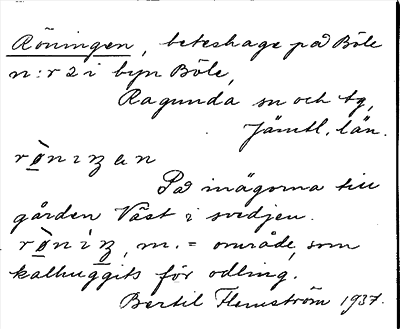 Röningen, beteshage på Böle
n:r 2 i byn Böle,
Ragunda sn och tg,
Jämtl. län.
rø̀niŋen
På inägorna till
gården Väst i svedjen.
rø̀niŋ, m. = område, som
kalhuggits för odling.
Bertil Flemström 1937.